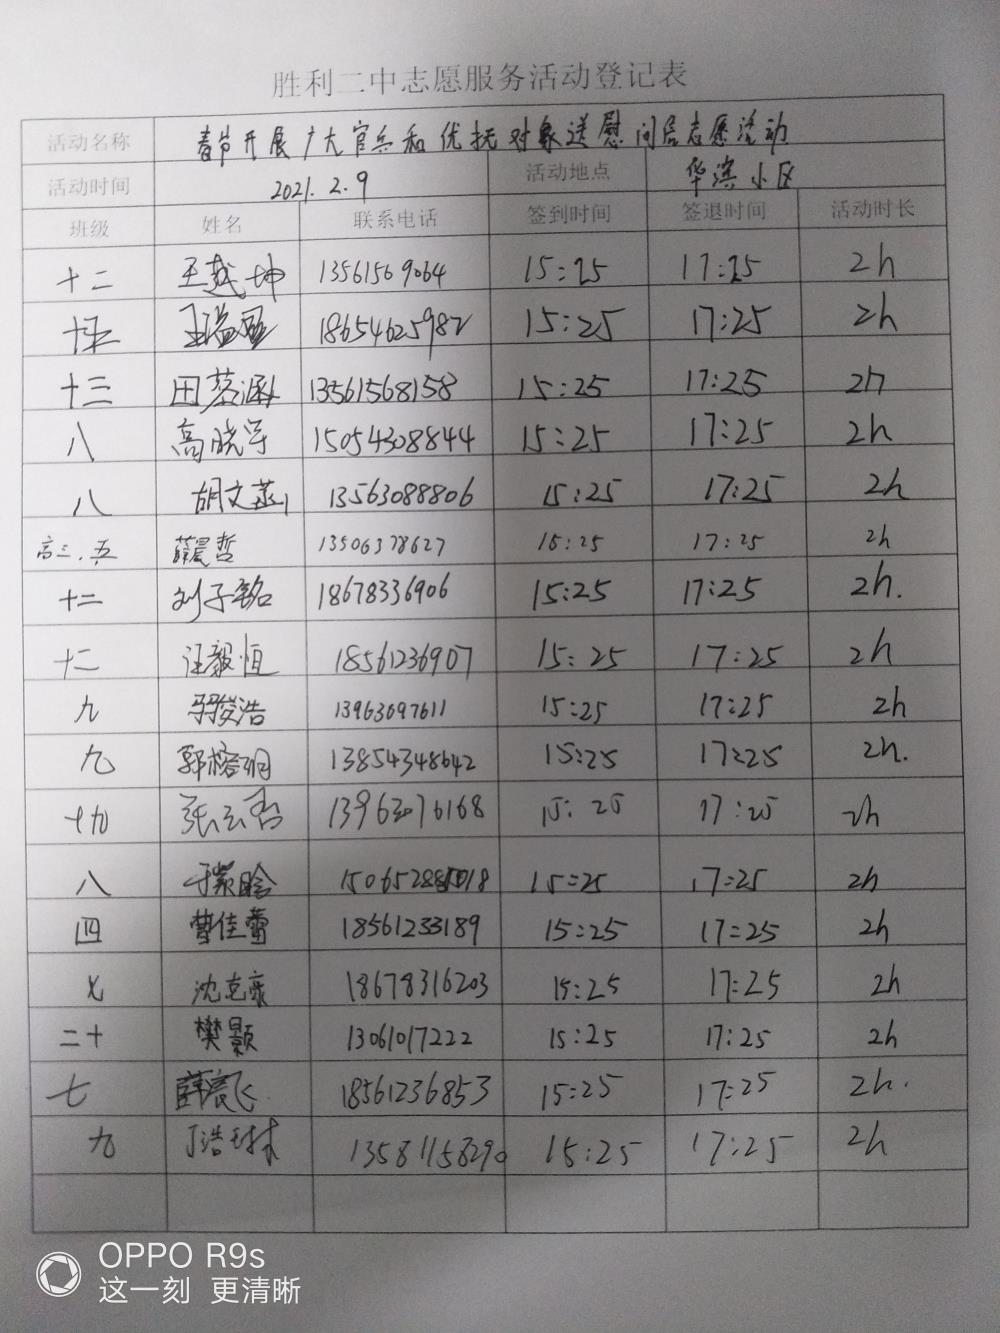 胜利二中志愿服务活动登记表
活动名称 春节开展广大官兵和优抚对象送慰问信志愿活动
活动时间 2021.2.9 活动地点 华滨小区
班级 姓名 联系电话 签到时间 签退时间 活动时长
十二 王越坤 13561569064 15:25 17:25 2h
18654625982 15:25 17:25 2h
十三 田蓉涵 13561568158 15:25 17:25 2h
八 高晓宇 15054308844 15:25 17:25 2h
八 胡文 13563088806 15:25 17:25 2h
高三.五 薛晨哲 13506378627 15:25 17:25 2h
十二 刘子铭 18678336906 15:25 17:25 2h.
十二 汪毅恒 18561236907 15:25 17:25 2h
九 浩 13963097611 15:25 17:25 2h
九 郭榕 13854348642 15:25 17:25 2h.
十九 张云 13963076168 15:25 17:25 2h
八 于紫晗 15:25 17:25 2h
四 曹佳蕾 18561233189 15:25 17:25 2h
七 沈克豪 18678316203 15:25 17:25 2h
二十 樊颢 13061017222 15:25 17:25 2h
七 薛宸飞 18561236853 15:25 17:25 2h.
九 丁浩 13581158290 15:25 17:25 2h
OPPO R9s
这一刻 更清晰